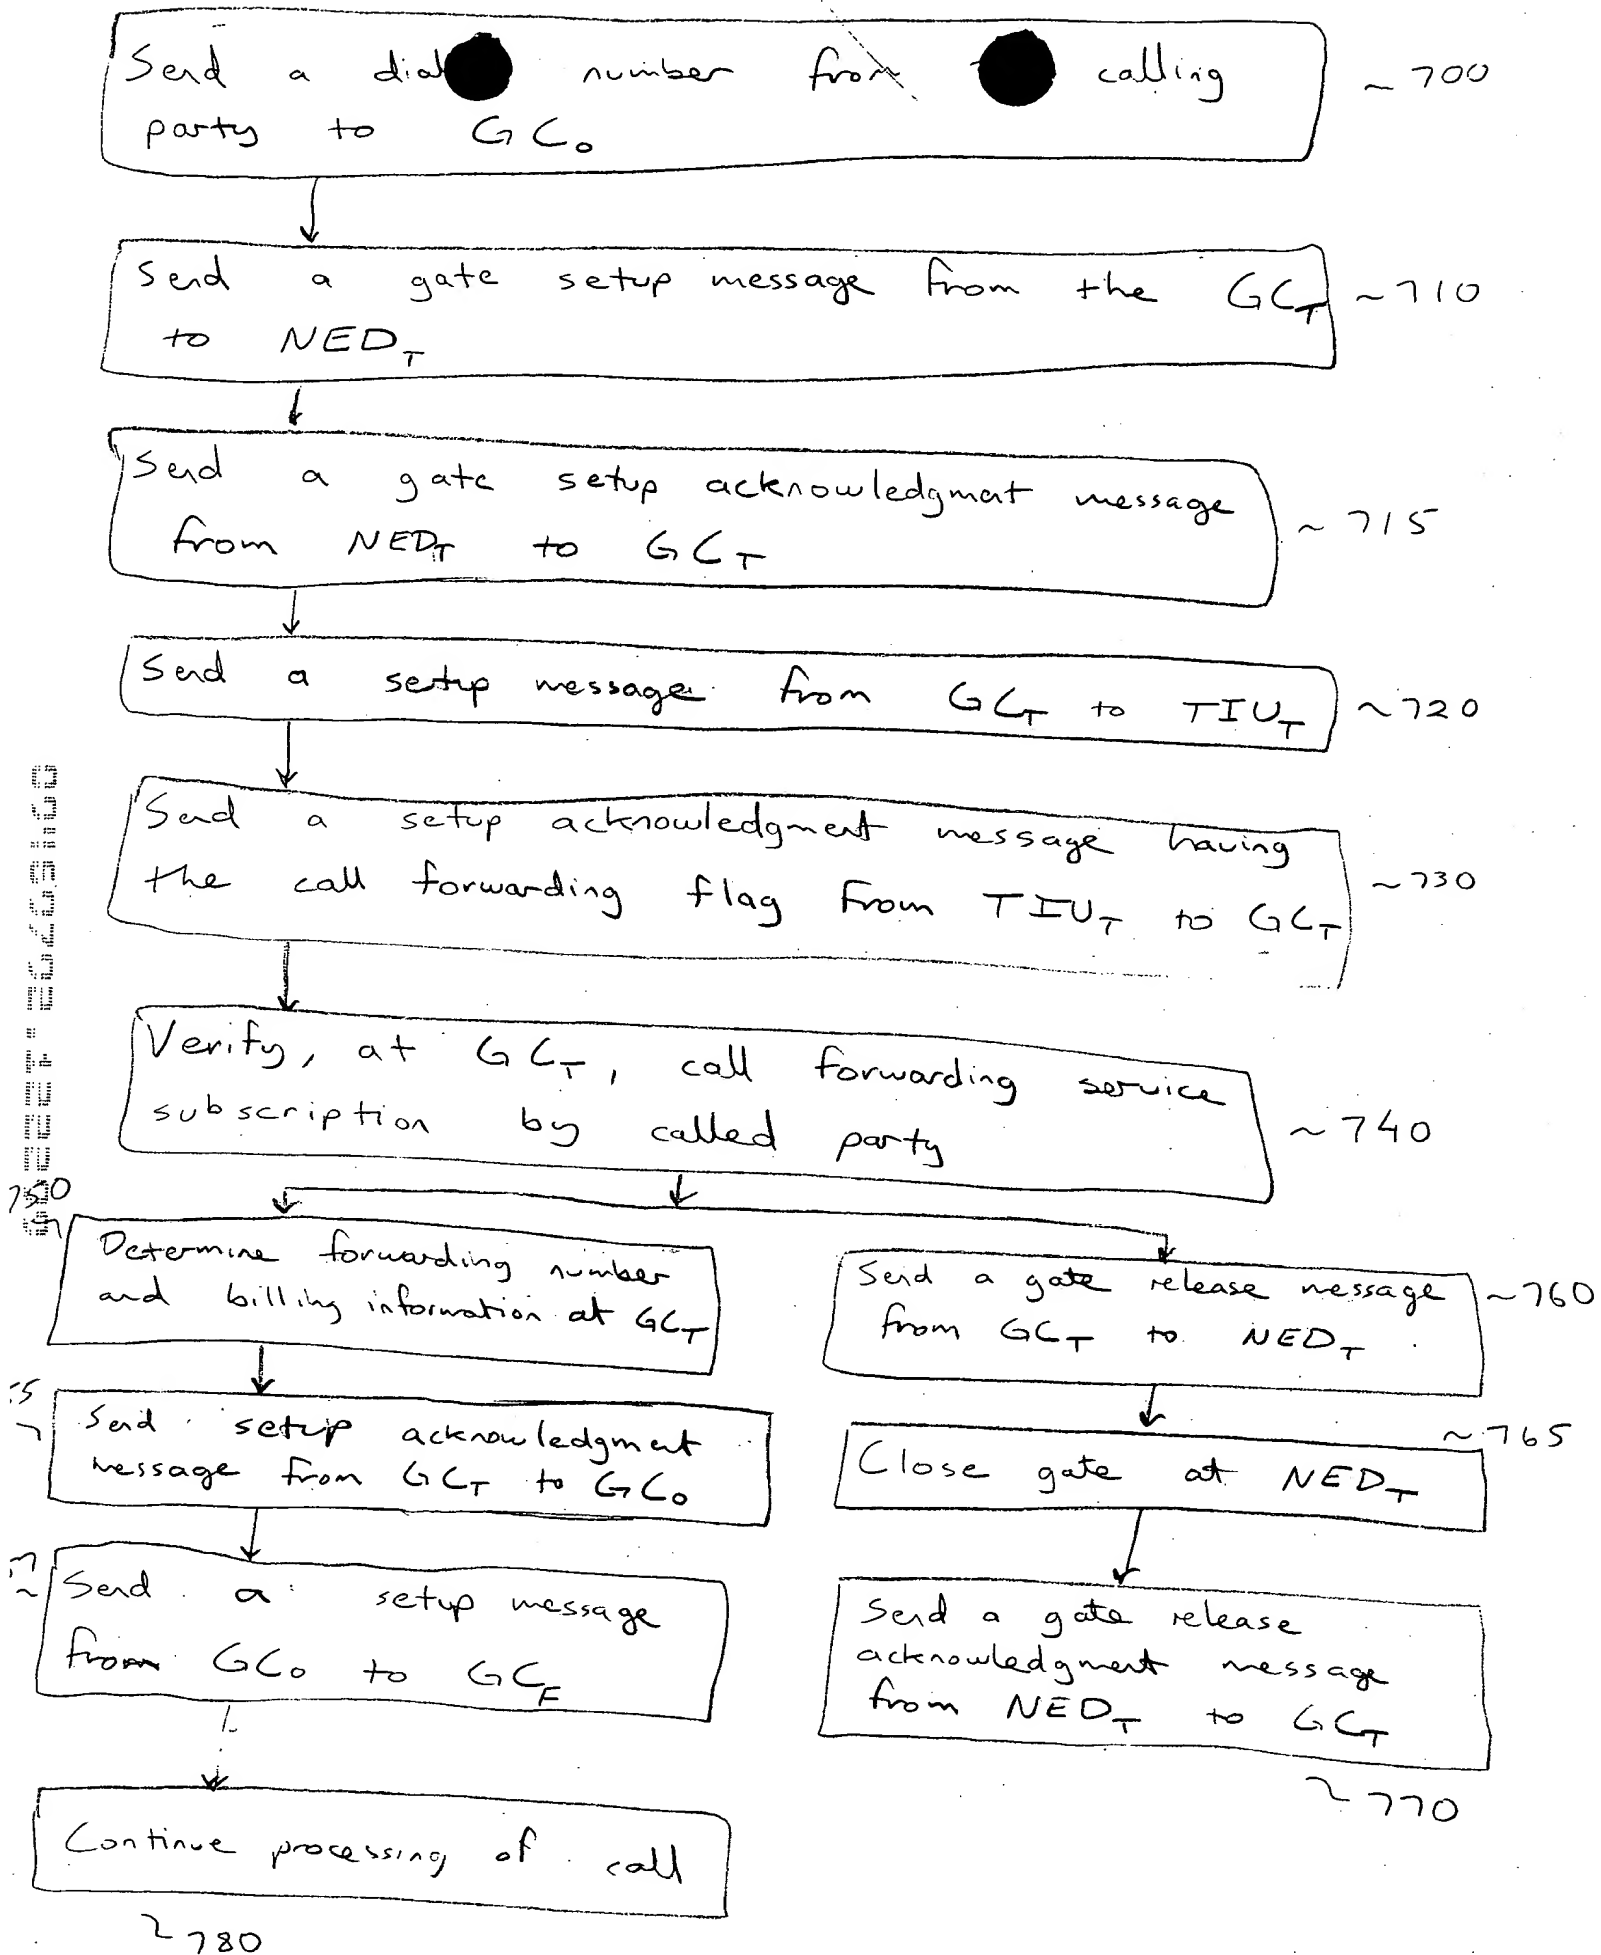 Send a number from calling ~ 700
party to GCo
Send a gate setup message from the GCT ~710
to NEDT
Send a gate setup acknowledgmat message
from NEDT to GCT ~ 715
Send a setup message from GCT to TIUT ~720
Send a setup acknowledgment message having
the call forwarding flag from TIUT to GCT ~730
Verify, at GCT, call forwarding service
subscription by called party ~740
750
Determine forwarding number
and billing information at GCT
Send setup acknowledgment
message from GCT to GCo
Send a setup message
from GCo to GCF
Continue processing of call
~780
Send a gate release message ~760
from GCT to NEDT
~765
Close gate at NEDT
Send a gate release
acknowledgment message
from NEDT to GCT
~770